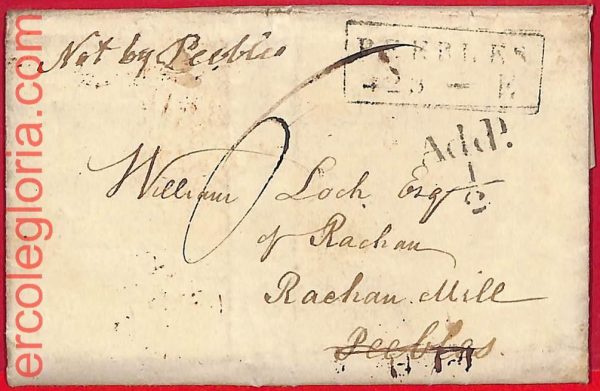 Not by Peebles
PEEBLES
423 — E
Addl.
1/2
6
William Loch Esq
of Rachan
Rachan Mill
Peebles.
ercolegloria.com